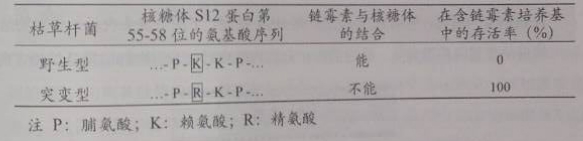 枯草杆菌 核糖体 S12 蛋白第 55-58 位的氨基酸序列 链霉素与核糖体的结合 在含链霉素培养基中的存活率（%）
野生型 ...- P - K - K - P -... 能 0
突变型 ...- P - R - K - P -... 不能 100
注 P：脯氨酸；K：赖氨酸；R：精氨酸